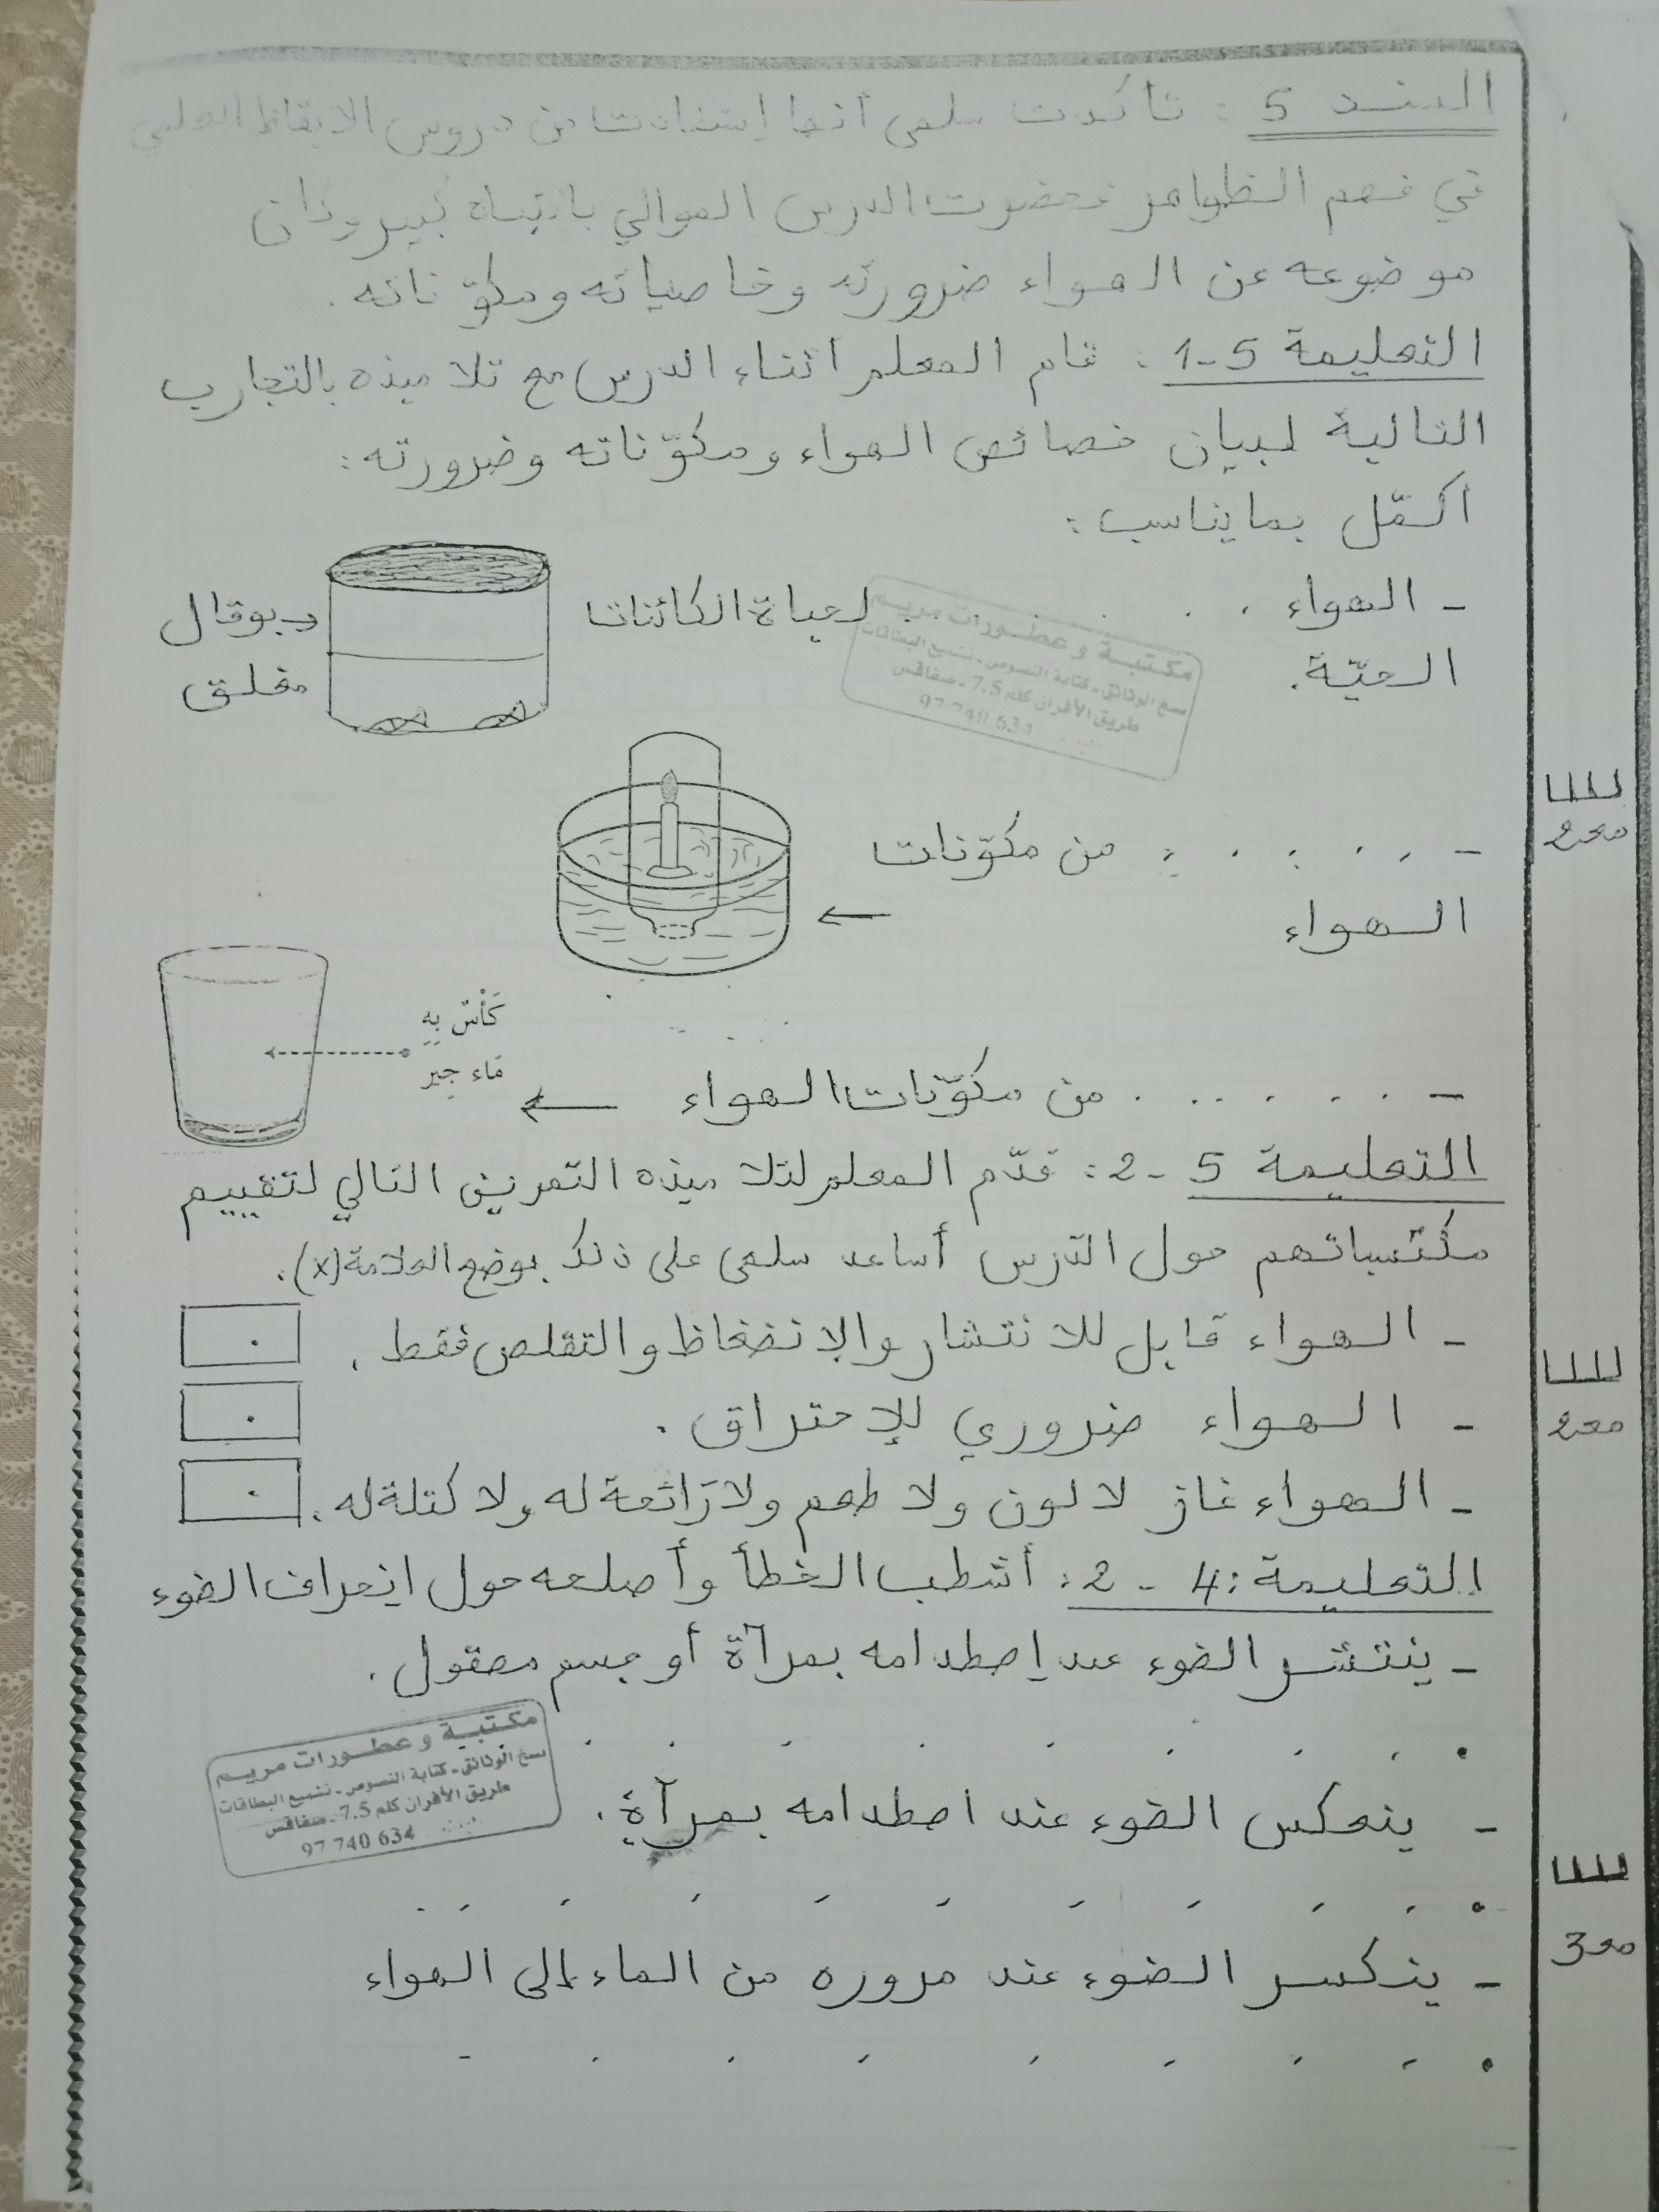 السند 5 : تأكدت سلمى أنها إستفادت من دروس الايقاظ العلمي
في فهم الظواهر فحضرت الدرس الموالي بانتباه كبير وكان
موضوعه عن الهواء ضرورته وخاصياته ومكوّناته .
التعليمة 5-1 : قام المعلم اثناء الدرس مع تلاميذه بالتجارب
التالية لبيان خصائص الهواء ومكوّناته وضرورته :
اكمّل بما يناسب :
- الهواء . . . . . . لحياة الكائنات
الحيّة.
بوقال
مغلق
مكتبة و عطورات مريم
نسخ الوثائق - كتابة النصوص - تشميع البطاقات
طريق الأفران كلم 7.5 - صفاقس
97 740 634
- . . . . . . من مكوّنات
الهواء ←
كَأْسٌ بِهِ
مَاء جِير
- . . . . . . من مكوّنات الهواء ←
التعليمة 5 - 2 : قدّم المعلم لتلاميذه التمرين التالي لتقييم
مكتسباتهم حول الدّرس أساعد سلمى على ذلك بوضع العلامة (x).
- الهواء قابل للانتشار والإنضغاظ والتقلص فقط .
- الهواء ضروري للإحتراق .
- الهواء غاز لا لون ولا طعم ولا رَائحة له ولا كتلة له .
التعليمة : 4 - 2 : أشطب الخطأ وأصلحه حول انحراف الضوء
- ينتشر الضوء عند إصطدامه بمرآة أو جسم مصقول .
. . . . . . . . .
مكتبة و عطورات مريم
نسخ الوثائق - كتابة النصوص - تشميع البطاقات
طريق الأفران كلم 7.5 - صفاقس
97 740 634
- ينعكس الضوء عند اصطدامه بمرآة .
. . . . . . . . .
- ينكسر الضوء عند مروره من الماء إلى الهواء
. . . . . . . . .
مع2
مع2
مع3